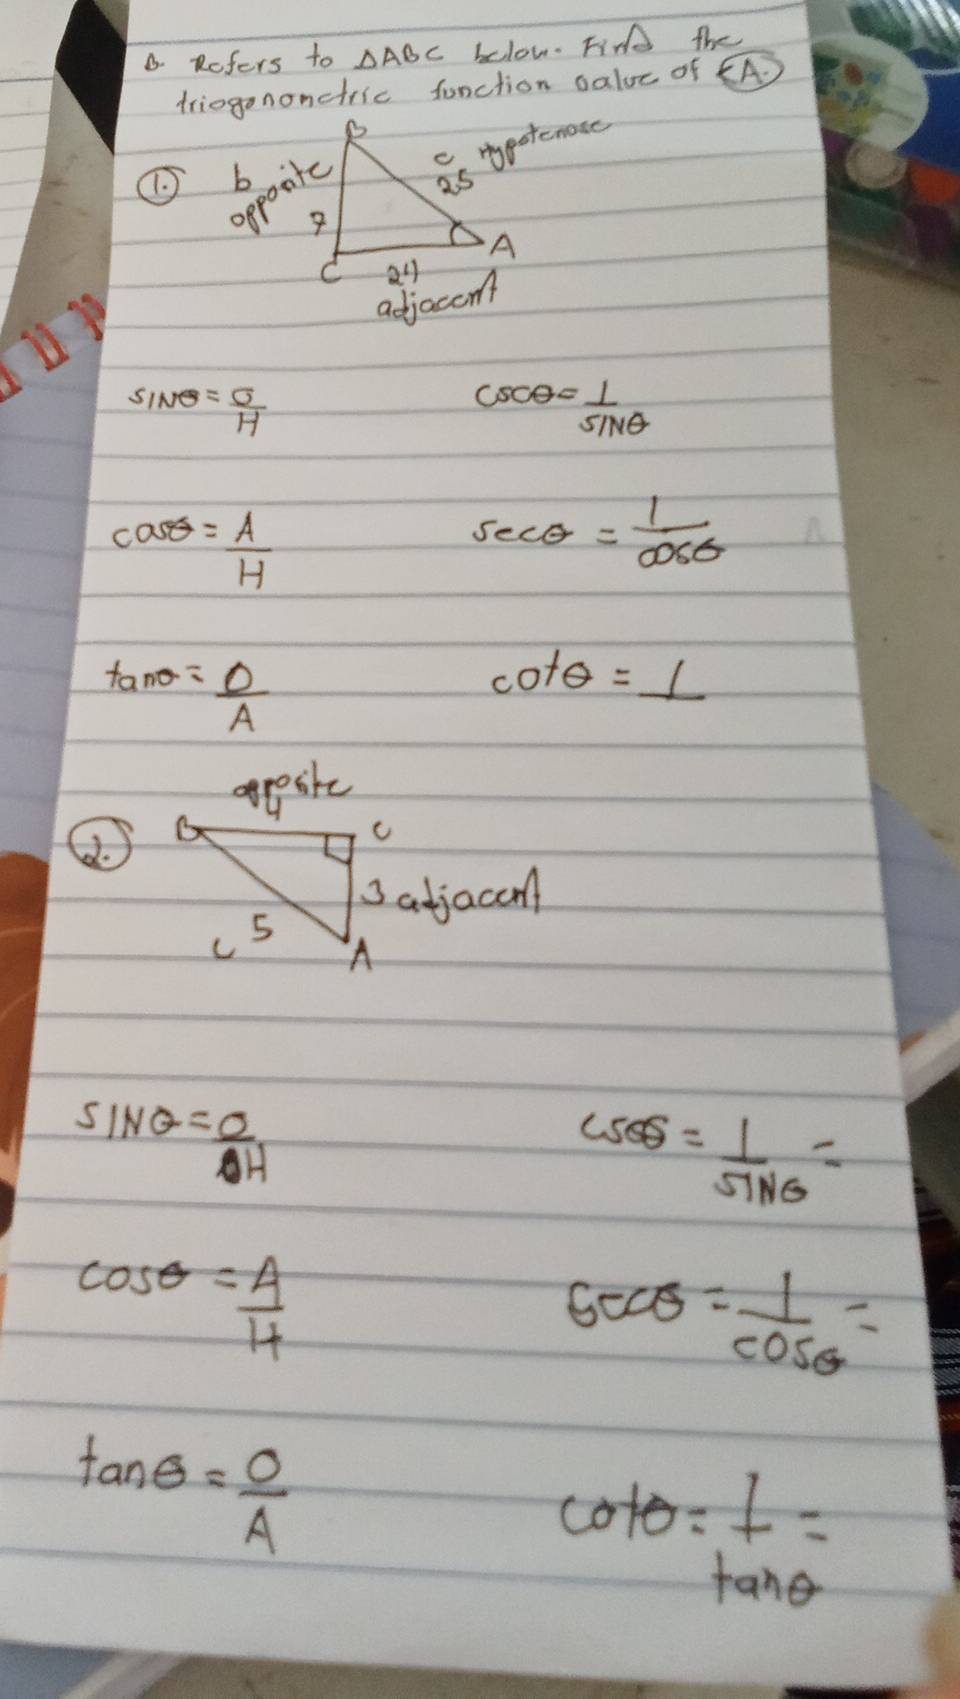 B. Refers to △ABC below. Find the
triogonometric function value of ∠A.
1.
B
b
opposite
7
c Hypotenose
25
C
24
A
adjacent
SINθ = O/H
cscθ = 1/SINθ
cosθ = A/H
secθ = 1/cosθ
tanθ = O/A
cotθ = 1
opposite
4
2.
B
C
3 adjacent
c 5
A
SINθ = O/H
cscθ = 1/SINθ =
cosθ = A/H
secθ = 1/cosθ =
tanθ = O/A
cotθ = 1/tanθ =